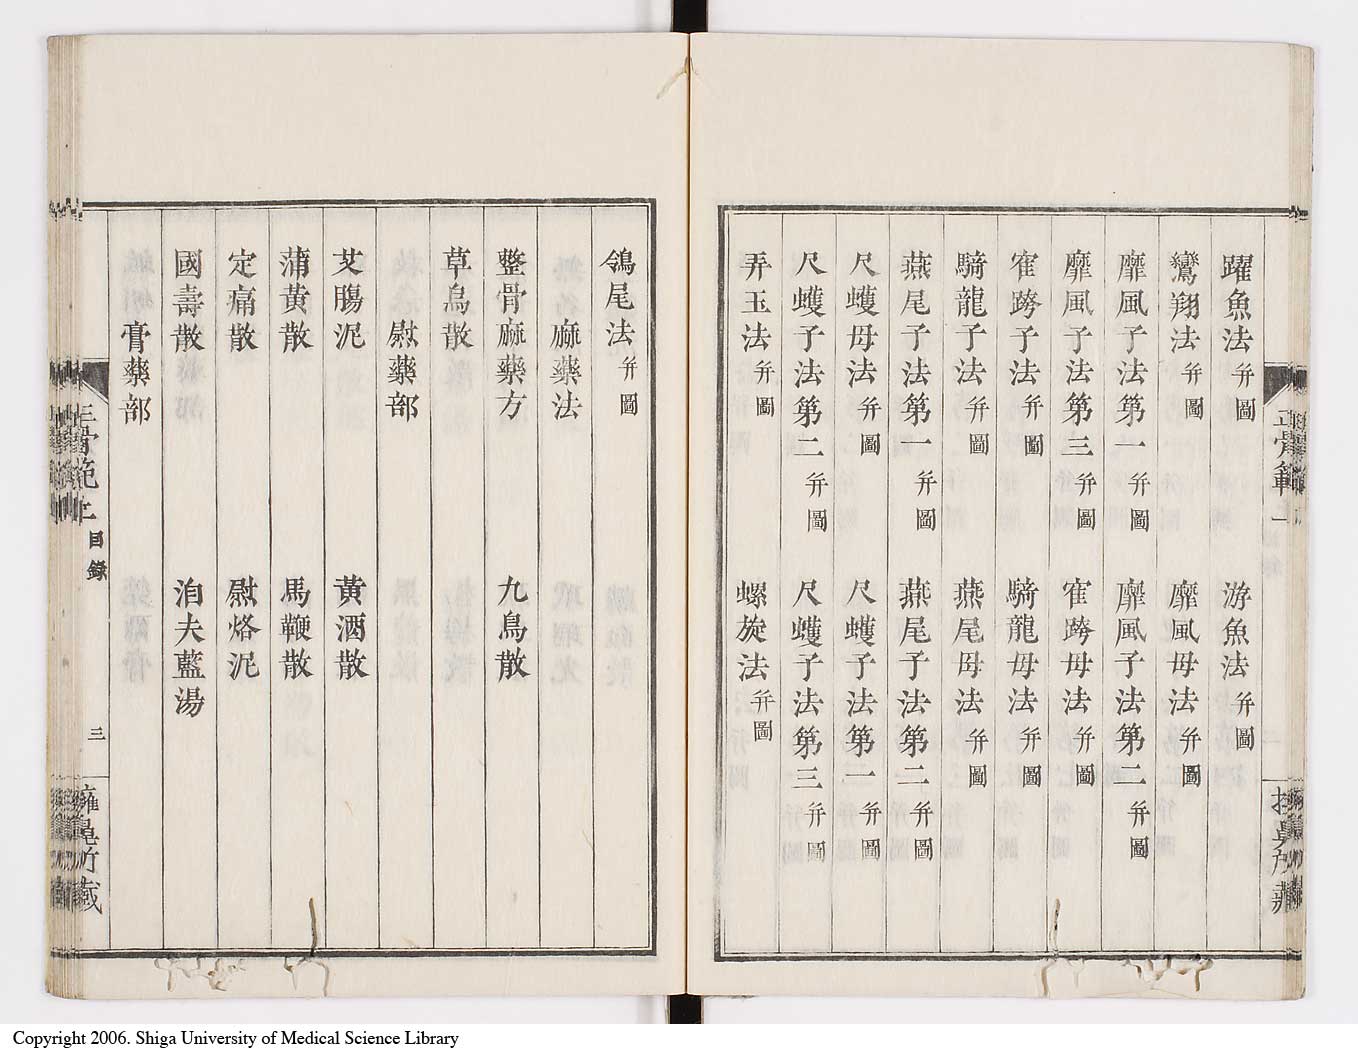 躍魚法 并圖 游魚法 并圖
鸞翔法 并圖 靡風母法 并圖
靡風子法第一 并圖 靡風子法第二 并圖
靡風子法第三 并圖 寉跨母法 并圖
寉跨子法 并圖 騎龍母法 并圖
騎龍子法 并圖 燕尾母法 并圖
燕尾子法第一 并圖 燕尾子法第二 并圖
尺蠖母法 并圖 尺蠖子法第一 并圖
尺蠖子法第二 并圖 尺蠖子法第三 并圖
弄玉法 并圖 螺旋法 并圖
鴿尾法 并圖
麻藥法
整骨麻藥方 九烏散
草烏散
熨藥部
芠腸泥 黃酒散
蒲黃散 馬鞭散
定痛散 熨烙泥
國壽散 洎夫藍湯
膏藥部
目錄
三
Copyright 2006. Shiga University of Medical Science Library